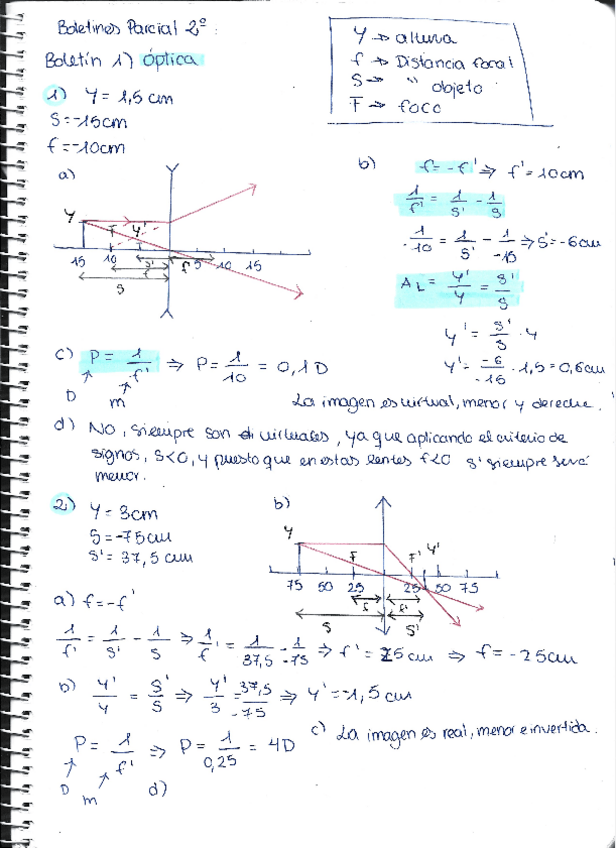 Boletines Parcial 2º:
Boletín 1) Óptica
Y → altura
f → Distancia focal
S → " objeto
F → foco
1) Y = 1,5 cm
S = -15cm
f = -10cm
a)
Y
F
Y'
15 10 5 10 15
S' f'
f
S
b) f = -f' ⇒ f' = 10cm
1/f' = 1/S' - 1/S
1/10 = 1/S' - 1/-15 ⇒ S' = -6cm
A_L = Y'/Y = S'/S
Y' = S'/S · Y
Y' = -6/-15 · 1,5 = 0,6cm
La imagen es virtual, menor y derecha.
c) P = 1/f' ⇒ P = 1/10 = 0,1 D
D m
d) NO, siempre son virtuales, ya que aplicando el criterio de
signos, S<0, y puesto que en estas lentes f<0 S' siempre será
menor.
2) Y = 3cm
S = -75cm
S' = 37,5 cm
b)
Y
F F' Y'
75 50 25 25 50 75
f f'
S S'
a) f = -f'
1/f' = 1/S' - 1/S ⇒ 1/f' = 1/37,5 - 1/-75 ⇒ f' = 25cm ⇒ f = -25cm
b) Y'/Y = S'/S ⇒ Y'/3 = 37,5/-75 ⇒ Y' = -1,5 cm
P = 1/f' ⇒ P = 1/0,25 = 4D
D m d)
c) La imagen es real, menor e invertida.